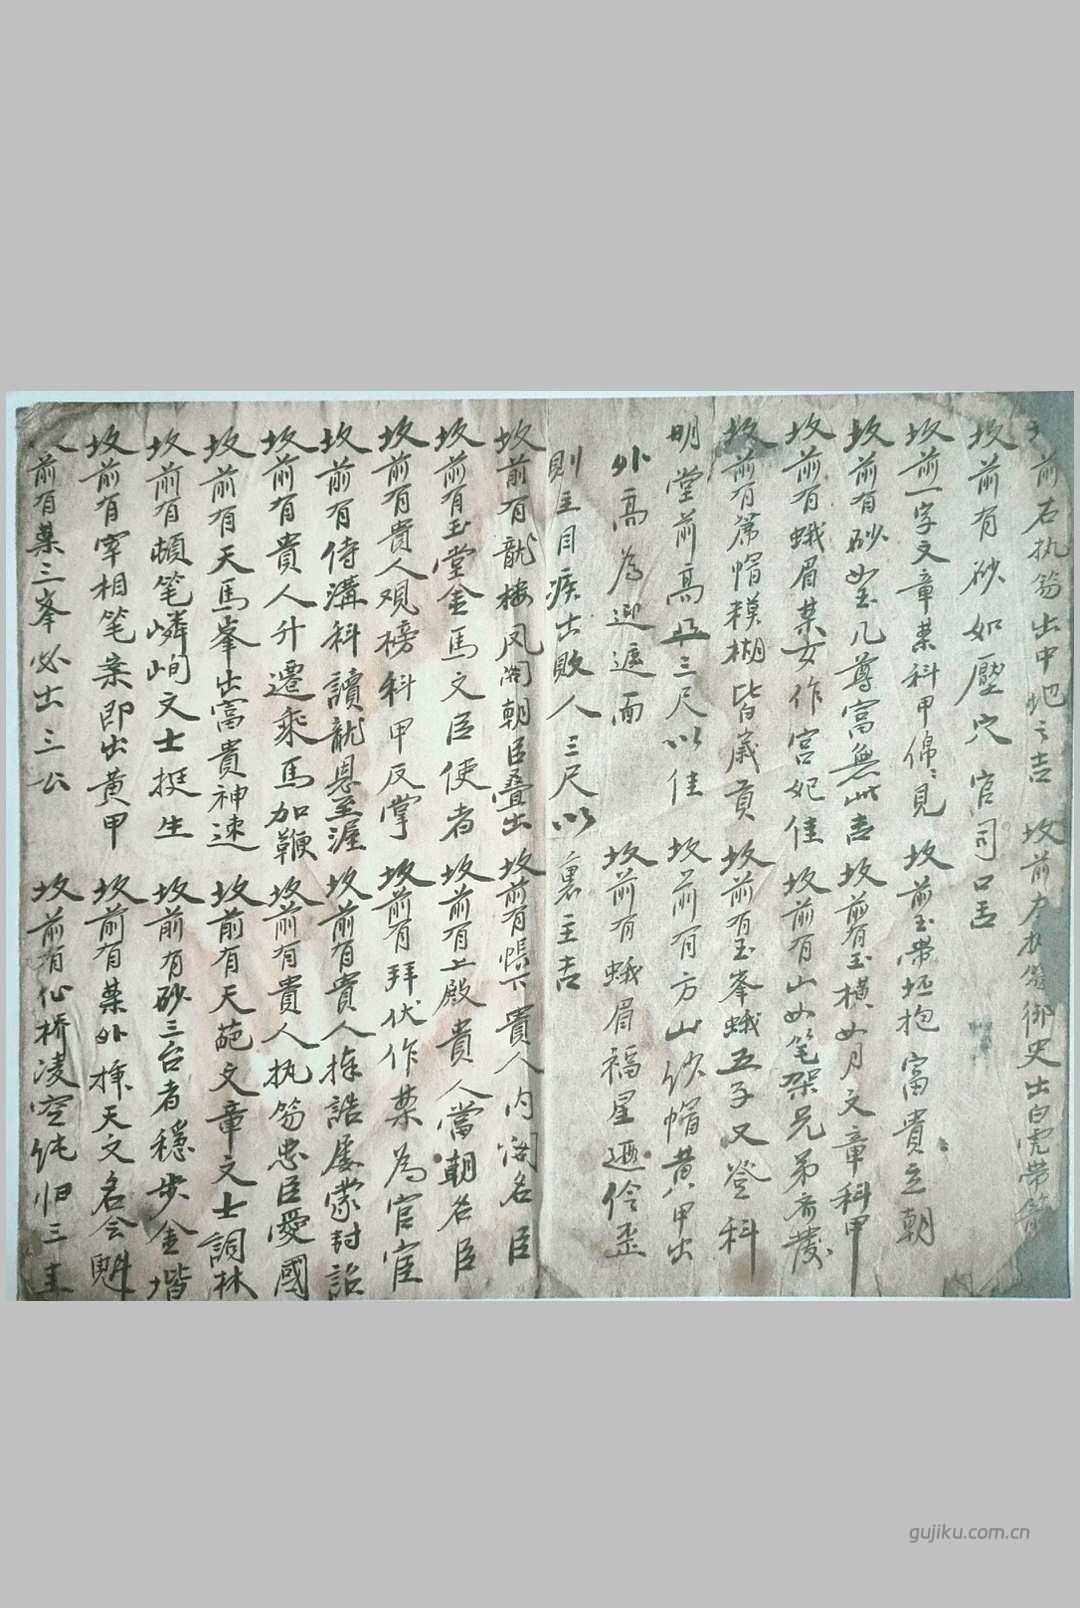 前右执笏出中地之吉 坟前左执笏御史出白虎带
坟前有砂如壓穴 官司口舌
坟前一字文章案科甲綿〻見 坟前玉带环抱富貴立朝
坟前有砂如玉几尊富無此吉 坟前有玉横如月文章科甲
坟前有蛾眉案女作宫妃佳 坟前有山如笔架兄弟齐發
坟前有席帽模糊皆歲貢 坟前有玉峯蛾五子又登科
明堂前高 三尺以佳 坟前有方山纱帽黄甲出
外高為迎遮而 坟前有蛾眉福星 伶
則主目疾出敗人三尺以裏主吉
坟前有龍楼凤阁朝臣叠出 坟前有帳下貴人内阁名臣
坟前有玉堂金馬文臣使者 坟前有上殿貴人當朝名臣
坟前有貴人观榜科甲反掌 坟前有拜伏作案為官宦
坟前有侍講科讀龍恩至渥 坟前有貴人捧誥屡蒙封詔
坟前有貴人升遷乘馬加鞭 坟前有貴人执笏忠臣愛國
坟前有天馬峯出富貴神速 坟前有天葩文章文士詞林
坟前有頓笔嶙峋文士挺生 坟前有砂三台者穩步金堦
坟前有宰相笔案即出黄甲 坟前有案外捧天文名会魁
前有案三峯必出三公 坟前有仙桥凌空 归三
gujiku.com.cn